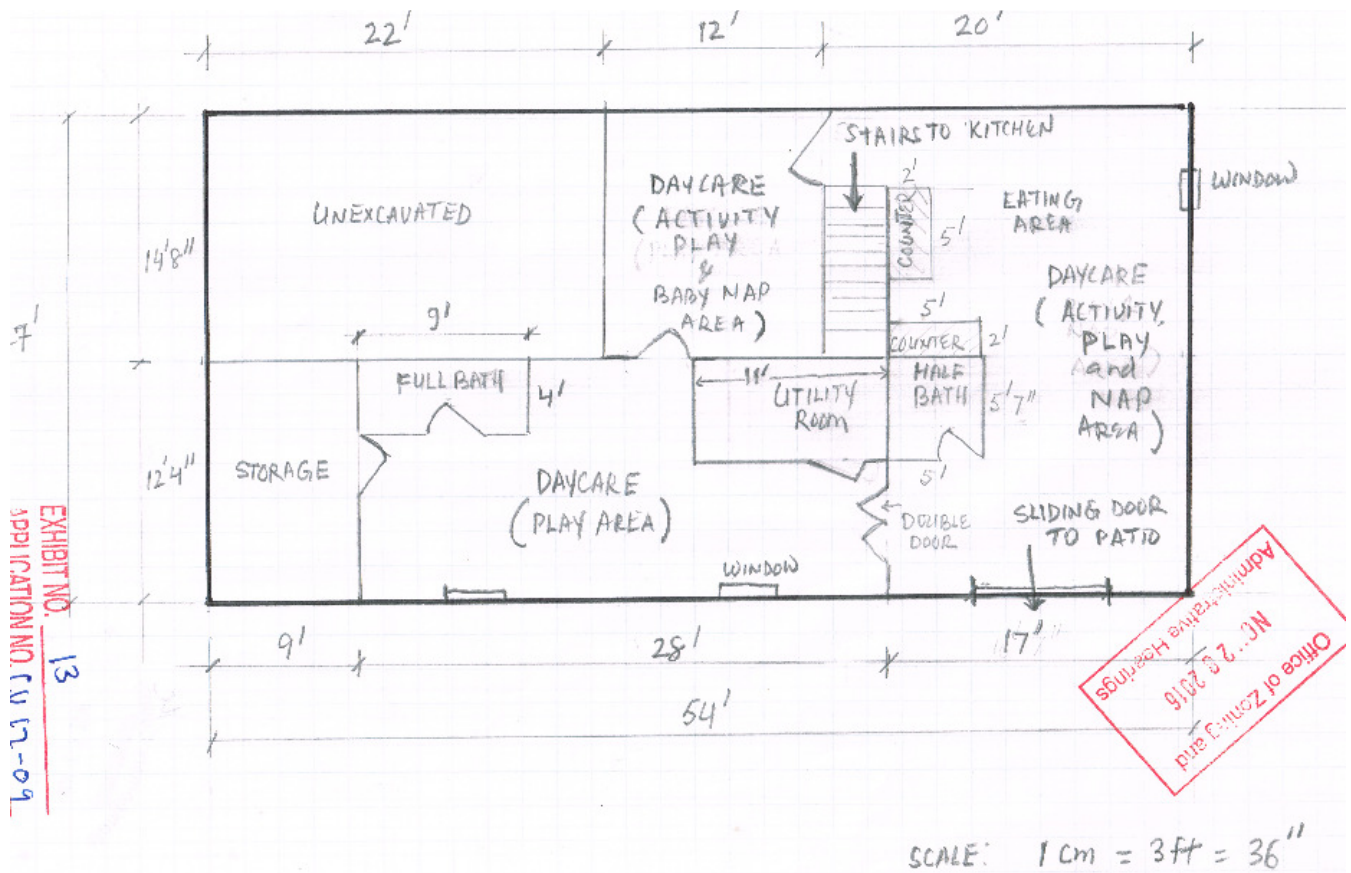 22'
12'
20'
STAIRS TO KITCHEN
2'
WINDOW
DAYCARE
(ACTIVITY
PLAY
&
BABY NAP
AREA)
COUNTER
5'
EATING
AREA
UNEXCAVATED
14'8"
7'
DAYCARE
(ACTIVITY,
PLAY
and
NAP
AREA)
9'
5'
COUNTER
2'
FULL BATH
4'
11'
UTILITY
ROOM
HALF
BATH
5'7"
5'
STORAGE
12'4"
DAYCARE
(PLAY AREA)
DOUBLE
DOOR
SLIDING DOOR
TO PATIO
WINDOW
9'
28'
17'
54'
EXHIBIT NO. 13
APPLICATION NO. CU 17-09
Office of Zoning and
2016
Administrative Hearings
SCALE: 1 cm = 3 ft = 36"